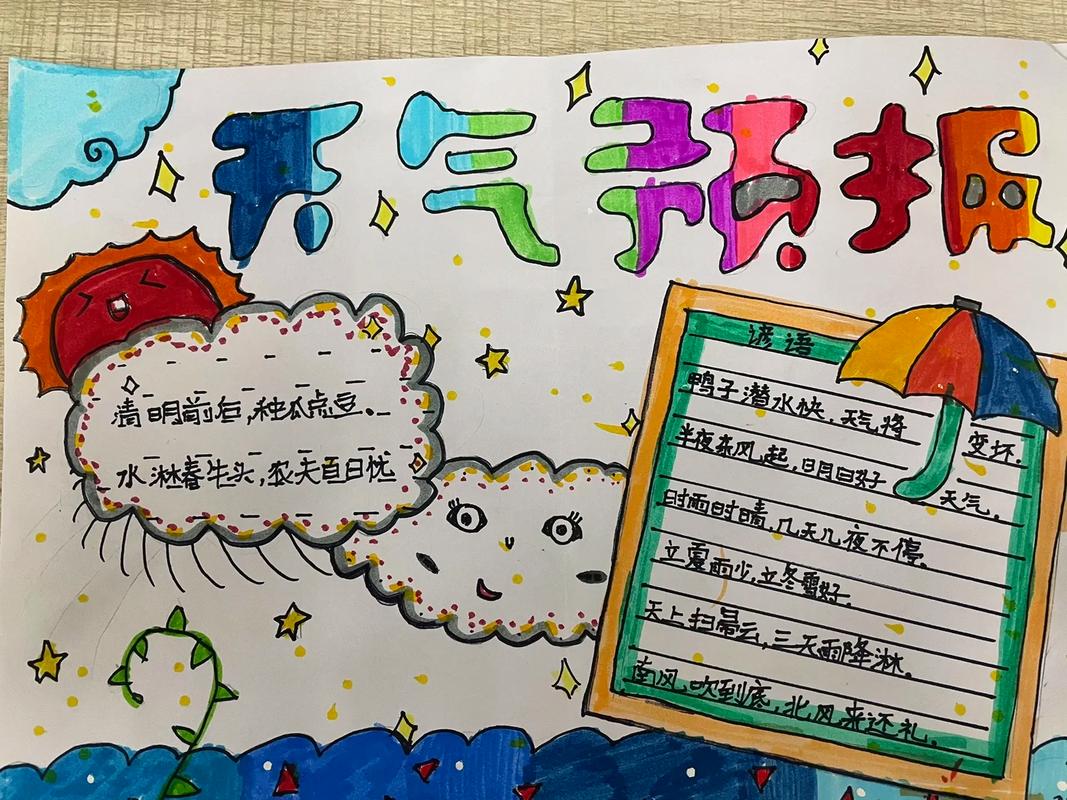 天气预报
清明前后,种瓜点豆。
水淋春牛头,农夫百日忧
谚语
鸭子潜水快,天气将变坏。
半夜东风起,明日日好天气。
时雨时晴,几天几夜不停。
立夏雨少,立冬雪好。
天上扫帚云,三天雨降淋。
南风吹到底,北风来还礼。